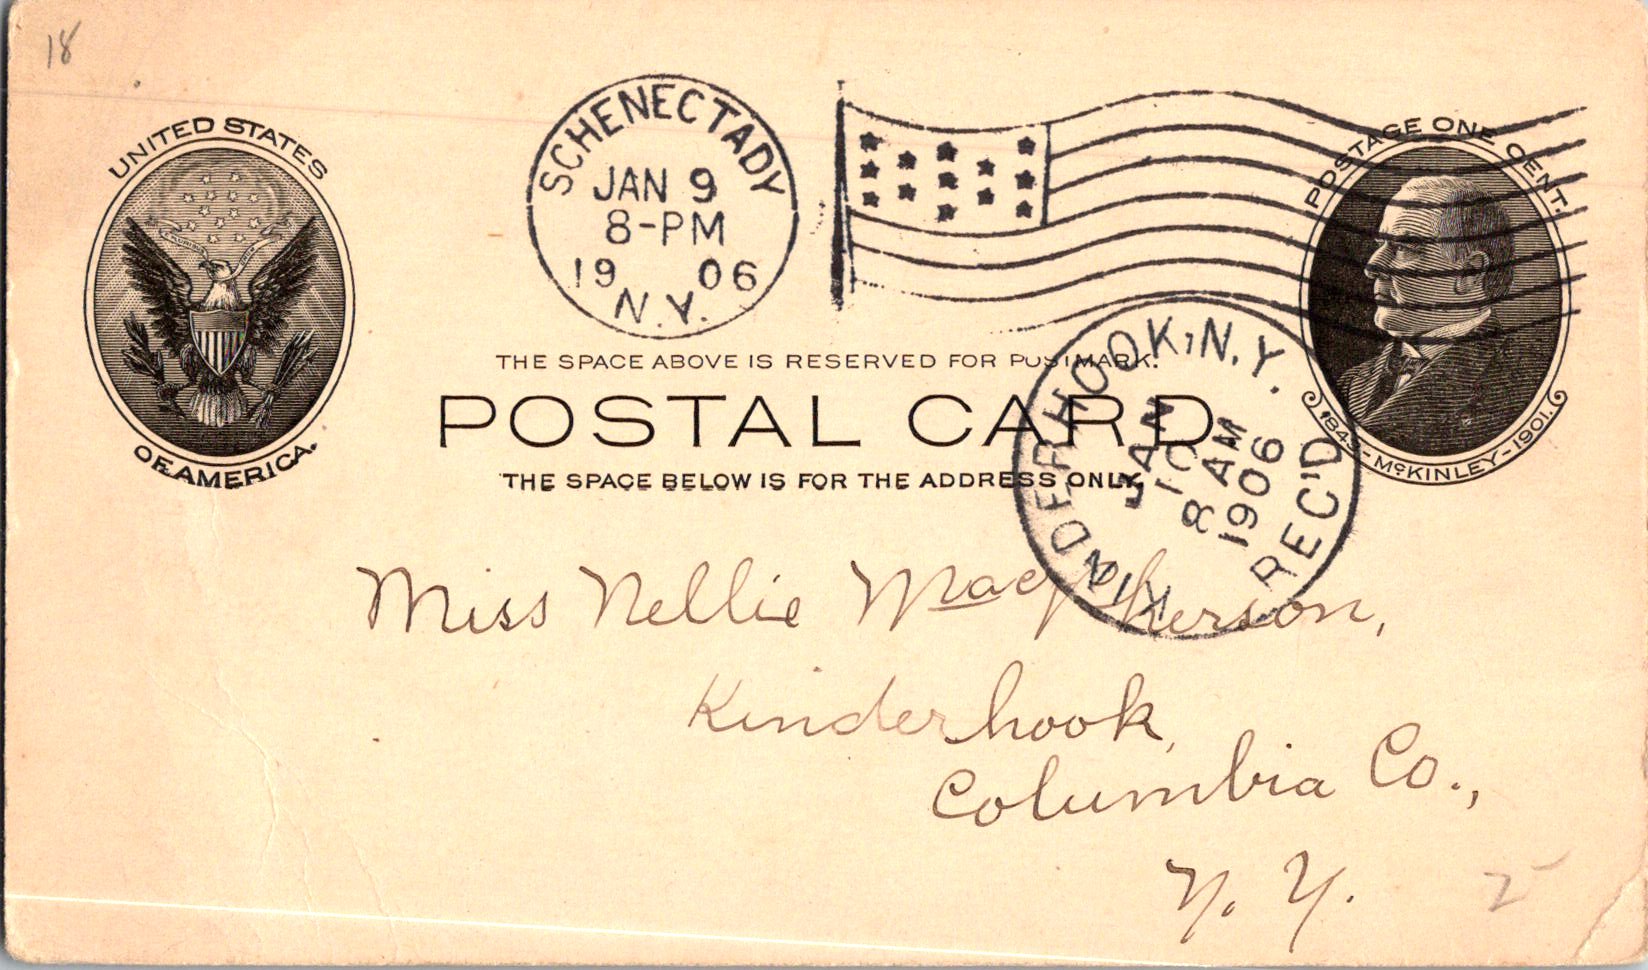 18
UNITED STATES
OF AMERICA.
SCHENECTADY
JAN 9
8-PM
19 06
N.Y.
POSTAGE ONE CENT.
1843-McKINLEY-1901.
THE SPACE ABOVE IS RESERVED FOR POSTMARK.
POSTAL CARD
THE SPACE BELOW IS FOR THE ADDRESS ONLY.
KINDERHOOK, N.Y.
JAN
10
8 AM
1906
REC'D
Miss Nellie Macpherson,
Kinderhook,
Columbia Co.,
N. Y.